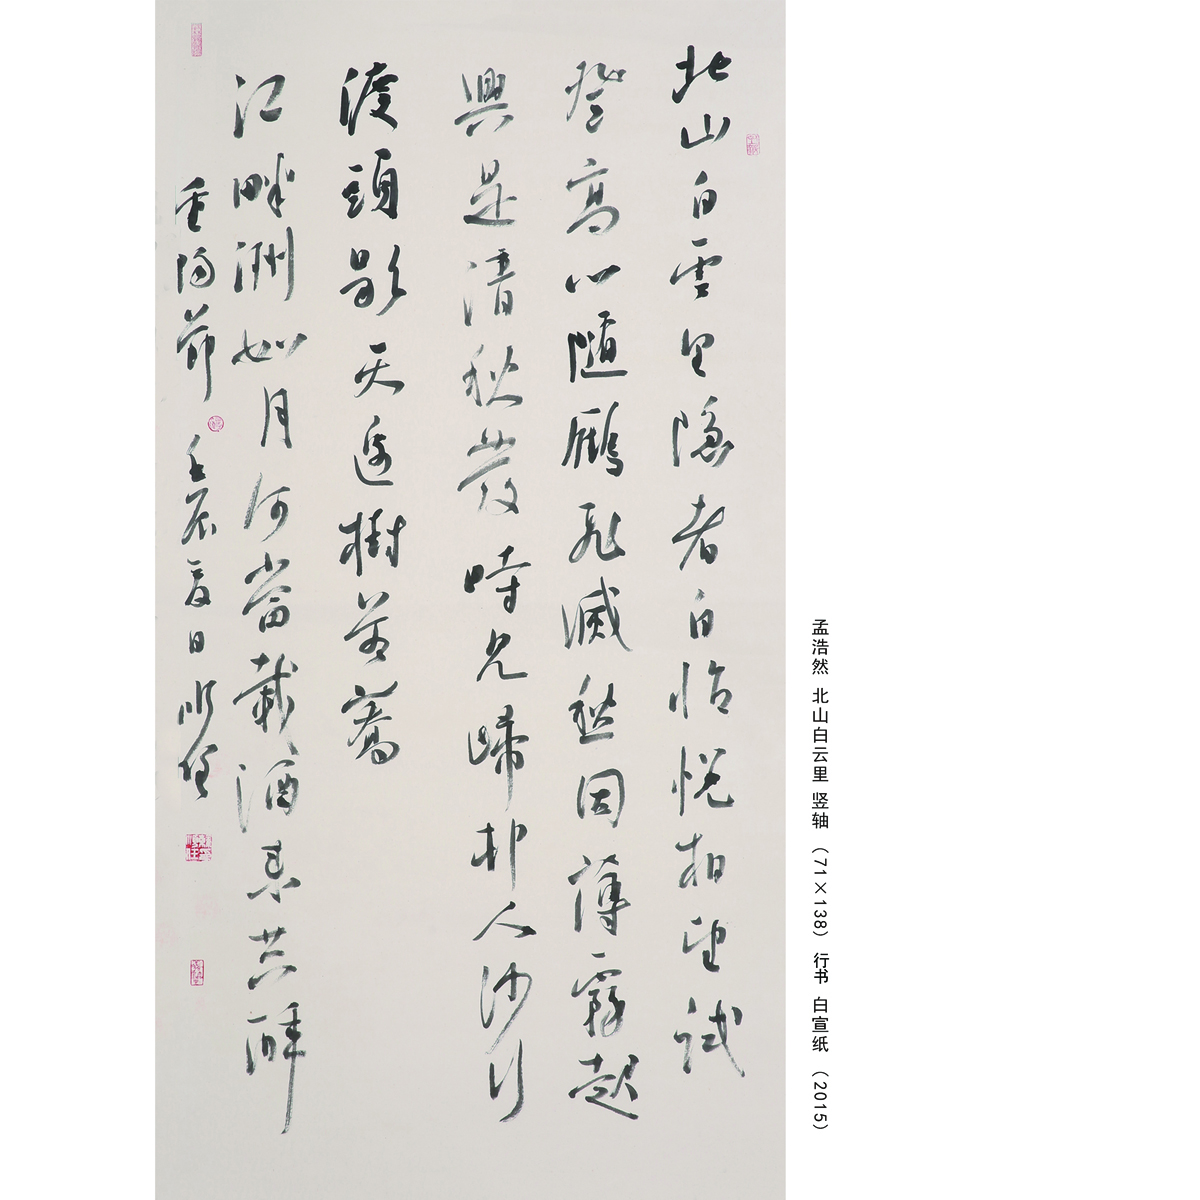 北山白雲里隱者自怡悦相望試
登高心隨鴈飛滅愁因薄霧起
興是清秋發時見歸村人沙行
渡頭歇天邊樹若薺
江畔洲如月何當載酒來共醉
重陽節 壬辰夏日
孟浩然 北山白云里 竖轴 (71×138) 行书 白宣纸 (2015)